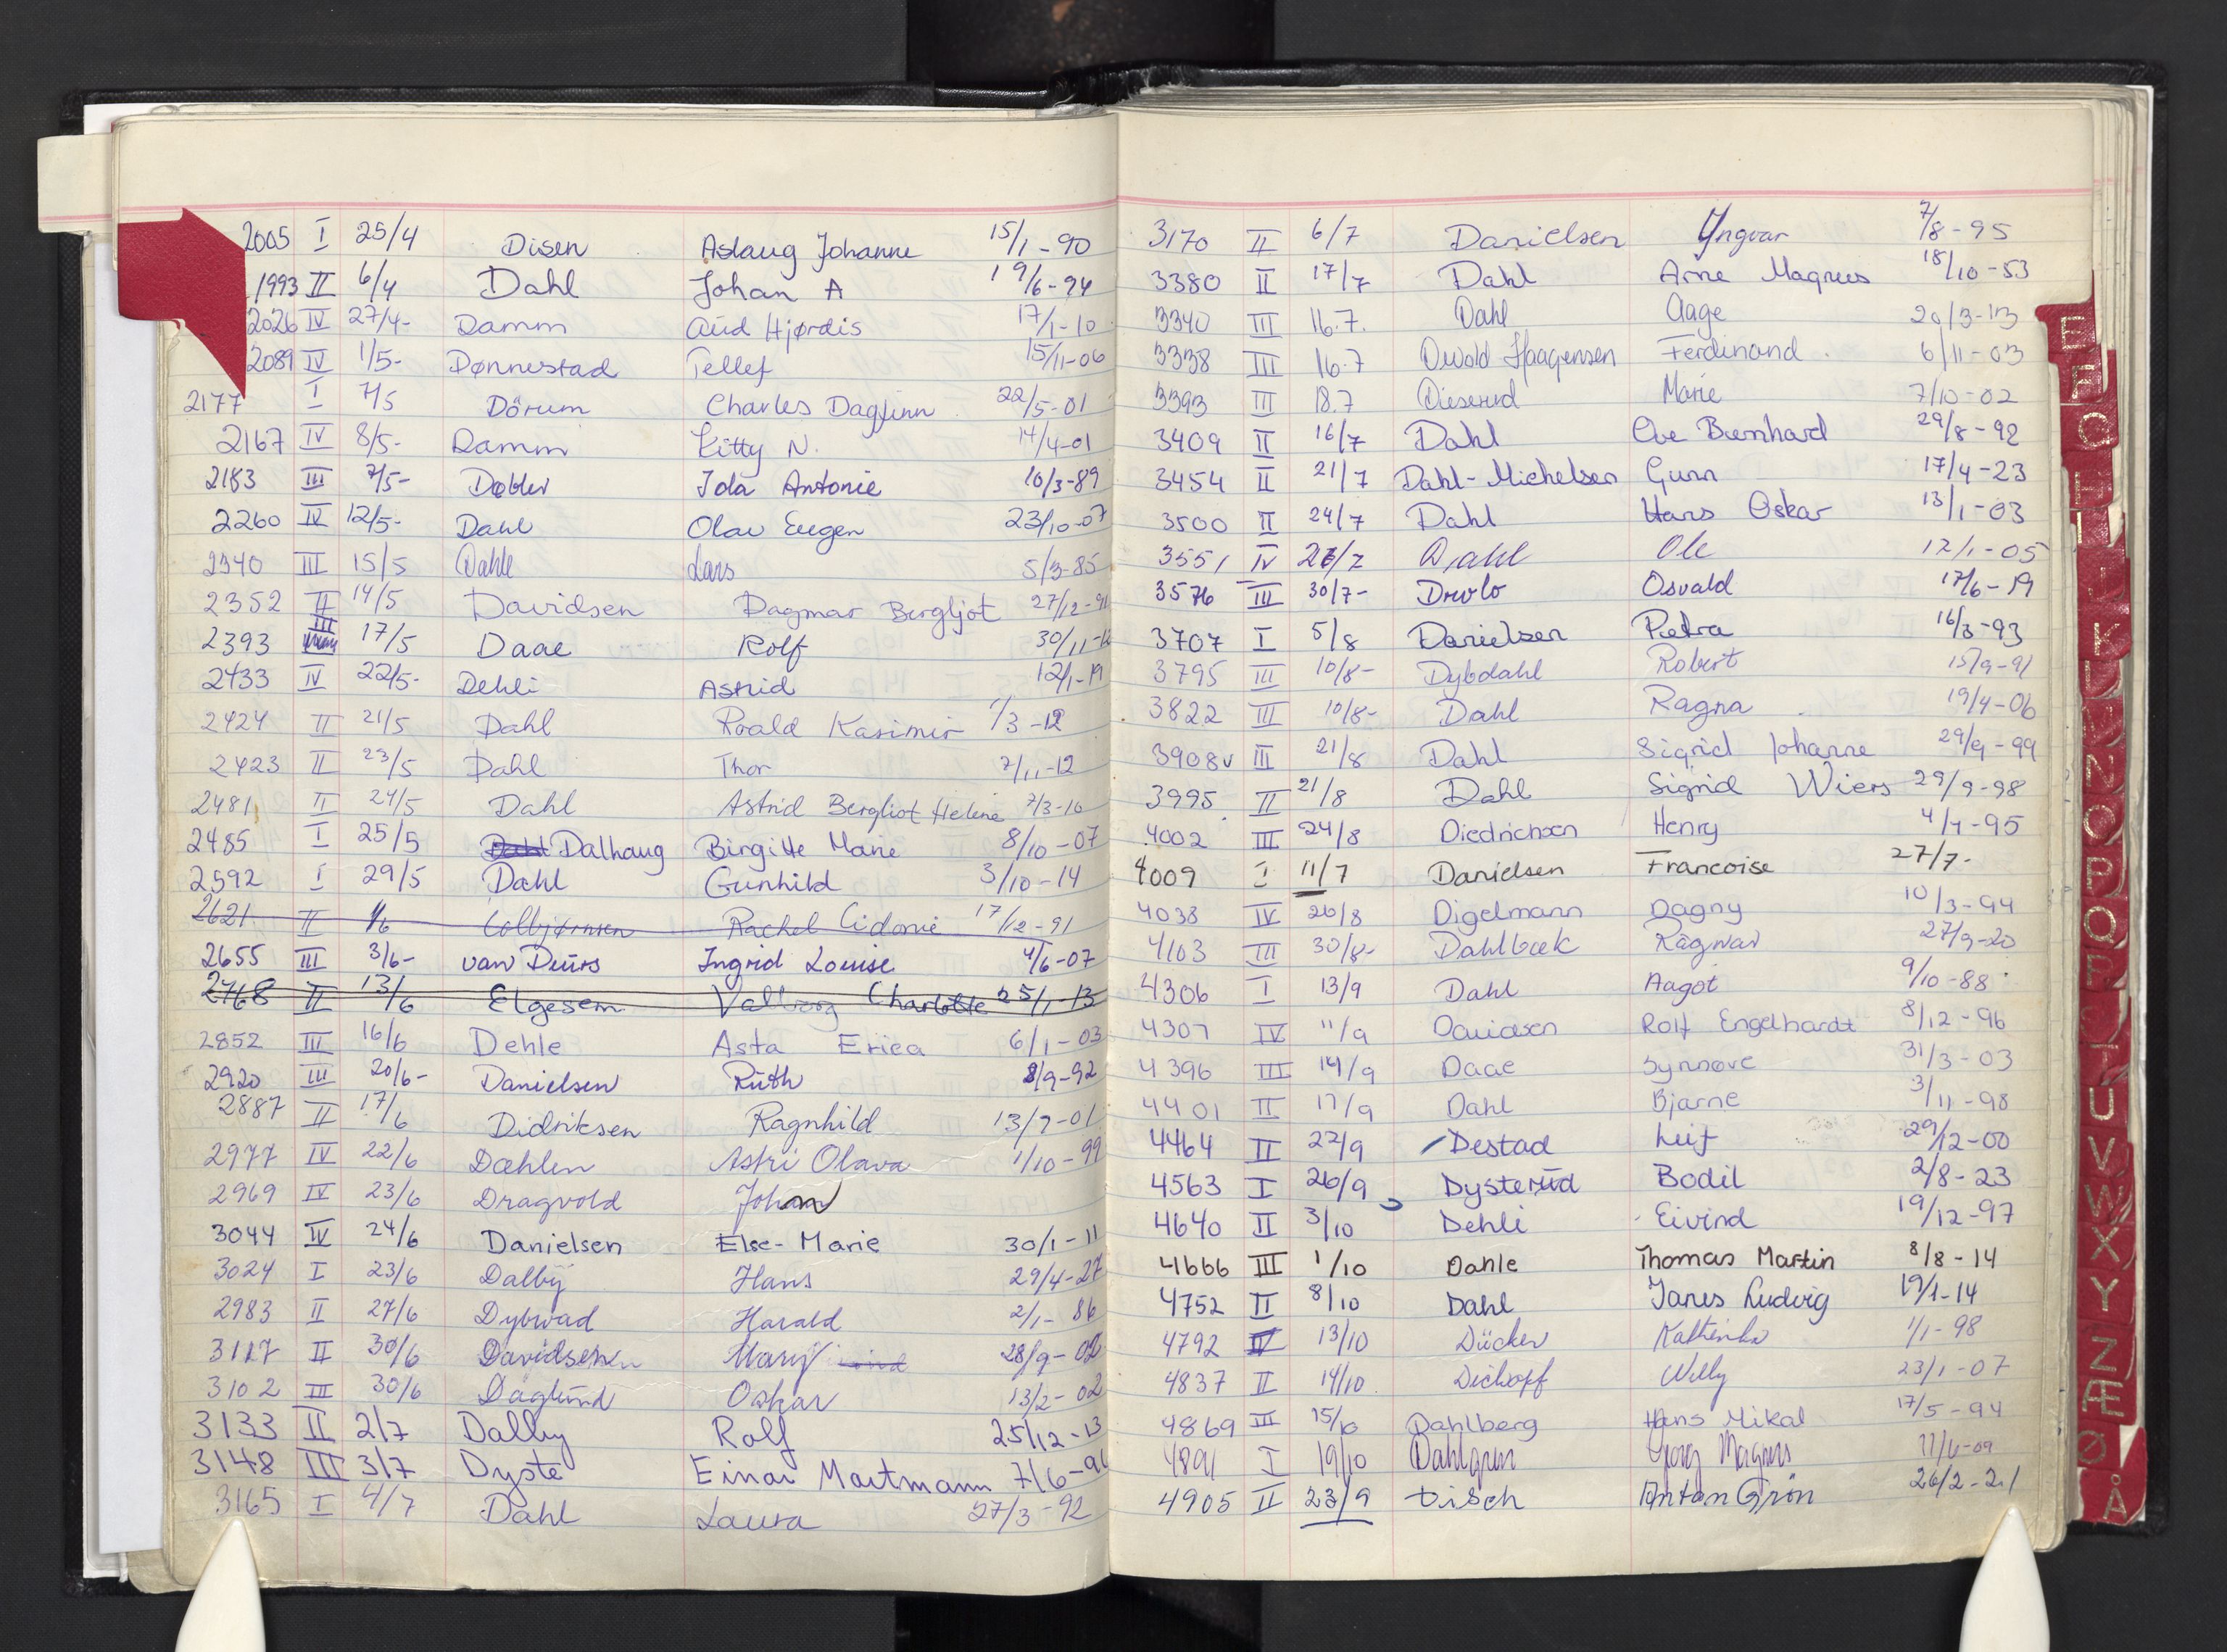 2005 I 25/4 Disen Aslaug Johanne 15/1-90
1993 II 6/4 Dahl Johan A 19/6-94
2026 IV 27/4- Damm Aud Hjørdis 17/1-10
2089 IV 1/5- Dønnestad Tellef 15/11-06
2177 I 7/5 Dörum Charles Dagfinn 22/5-01
2167 IV 8/5- Damm Kitty N. 14/4-01
2183 III 7/5- Døbler Ida Antonie 10/3-89
2260 IV 12/5- Dahl Olav Eugen 23/10-07
2340 III 15/5 Dahle Lars 5/3-85
2352 II 14/5 Davidsen Dagmar Bergljot 27/12-91
2393 III 17/5 Daae Rolf 30/11-12
2433 IV 22/5- Dehli Astrid 12/1-19
2424 II 21/5 Dahl Roald Kasimir 1/3-12
2423 II 23/5 Dahl Thor 7/11-12
2481 II 24/5 Dahl Astrid Bergliot Helene 7/3-10
2485 I 25/5 Dahl Dalhaug Birgitte Marie 8/10-07
2592 I 29/5 Dahl Gunhild 3/10-14
2621 II 1/6 Colbjørnsen Rachel Cidonie 17/12-91
2655 III 3/6- van Deurs Ingrid Louise 4/6-07
2768 II 13/6 Elgesem Valborg Charlotte 25/1-13
2852 III 16/6 Dehle Asta Erica 6/1-03
2920 III 20/6- Danielsen Ruth 8/9-92
2887 II 17/6 Didriksen Ragnhild 13/7-01
2977 IV 22/6 Dæhlen Astri Olava 1/10-99
2969 IV 23/6 Dragvold Johan
3044 IV 24/6 Danielsen Else-Marie 30/1-11
3024 I 23/6 Dalby Hans 29/4-27
2983 II 27/6 Dybwad Harald 2/1-86
3117 II 30/6 Davidsen Mary 28/9-02
3102 III 30/6 Daglund Oskar 13/2-02
3133 II 2/7 Dalby Rolf 25/12-13
3148 III 3/7 Dyste Einar Martmann 7/6-91
3165 I 4/7 Dahl Laura 27/3-92
3170 II 6/7 Danielsen Yngvar 7/8-95
3380 II 17/7 Dahl Arne Magnus 18/10-53
3340 III 16.7. Dahl Aage 20/3-13
3338 III 16.7 Haagensen Ferdinand 6/11-03
3393 III 18.7 Diserud Marie 7/10-02
3409 II 16/7 Dahl Ove Bernhard 29/8-92
3454 II 21/7 Dahl-Michelsen Gunn 17/4-23
3500 II 24/7 Dahl Hans Oskar 13/1-03
3551 IV 26/7 Dahl Ole 12/1-05
3576 III 30/7- Osvald 17/6-19
3707 I 5/8 Danielsen Petra 16/3-93
3795 III 10/8- Dybdahl Robert 15/9-91
3822 III 10/8- Dahl Ragna 19/4-06
3908v III 21/8 Dahl Sigrid Johanne 29/9-99
3995 II 21/8 Dahl Sigrid Wiers 29/9-98
4002 III 24/8 Diedrichsen Henry 4/4-95
4009 I 11/7 Danielsen Francoise 27/7-
4038 IV 26/8 Digelmann Dagny 10/3-94
4103 III 30/8- Dahlbæk Ragnar 27/9-20
4306 I 13/9 Dahl Aagot 9/10-88
4307 IV 11/9 Davidsen Rolf Engelhardt 8/12-96
4396 III 14/9 Daae Synnøve 31/3-03
4401 II 17/9 Dahl Bjarne 3/11-98
4464 II 22/9 Destad Leif 29/12-00
4563 I 26/9 Dysterud Bodil 2/8-23
4640 II 3/10 Dehli Eivind 19/12-97
4666 III 1/10 Dahle Thomas Martin 8/8-14
4752 II 8/10 Dahl Janus Ludvig 19/1-14
4792 IV 13/10 Dücker Kathinka 1/1-98
4837 II 14/10 Dickopf Willy 23/1-07
4869 III 15/10 Dahlberg Hans Mikal 17/5-94
4891 I 19/10 Dahlgren Georg Magnus 11/6-09
4905 II 23/9 Disch Anton Grön 26/2-21
E
F
G
H
I
J
K
L
M
N
O
P
Q
R
S
T
U
V
W
X
Y
Z
Æ
Ø
Å